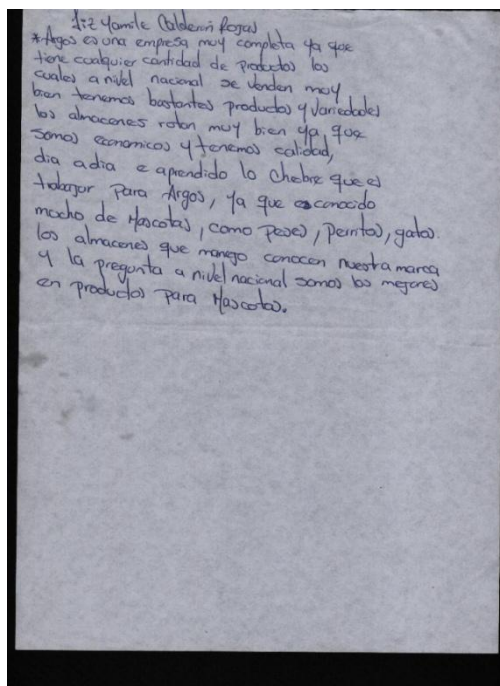 Liz Yamile Calderón Rojas
*Argos es una empresa muy completa ya que
tiene cualquier cantidad de productos los
cuales a nivel nacional se venden muy
bien tenemos bastantes productos y variedades
los almacenes rotan muy bien ya que
somos economicos y tenemos calidad,
dia a dia e aprendido lo chebre que es
trabajar para Argos, ya que es conocido
mucho de Mascotas, como peses, perritos, gatos.
los almacenes que manejo conocen nuestra marca
y la pregunta a nivel nacional somos los mejores
en productos para Mascotas.